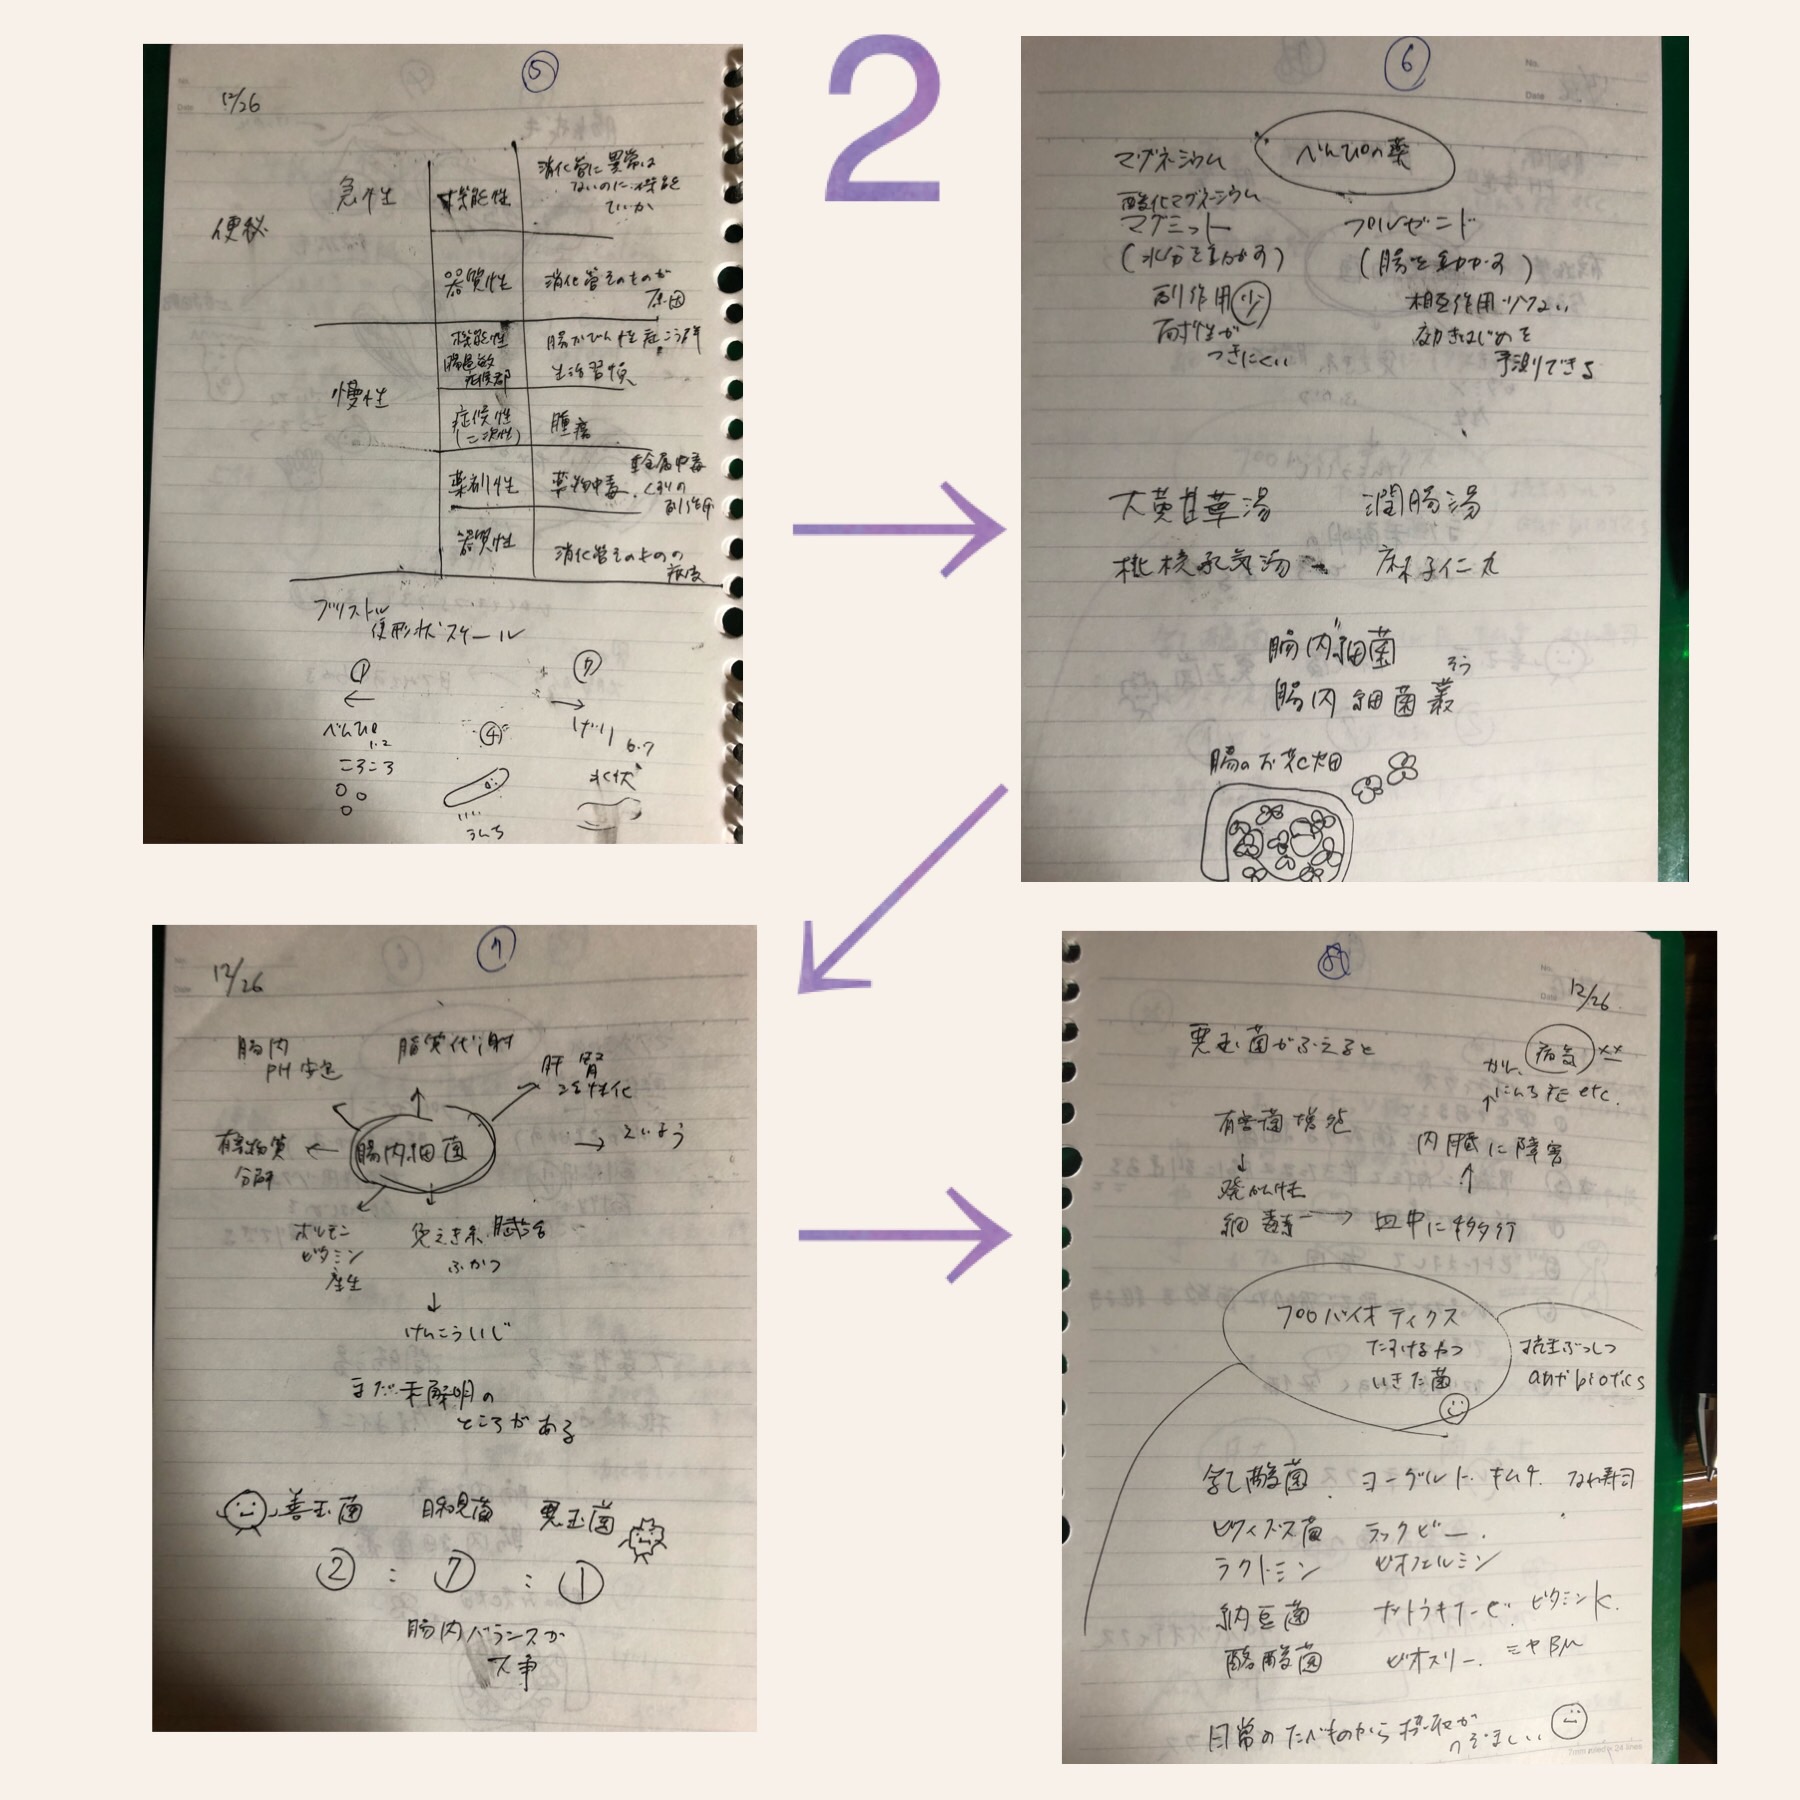 2
⑤
12/26
便秘
急性
機能性
消化管に異常は
ないのに機能
器質性
消化管そのものが
原因
慢性
機能性
腸過敏
症候群
生活習慣
症候性
(二次性)
腫瘍
薬剤性
薬物中毒
重金属中毒
くすりの
副作用
器質性
消化管そのものの
病変
ブリストル
便形状スケール
① ⑦
← →
べんぴ
1.2
ころころ
④
うんち
げり
6.7
水状
⑥
べんぴの薬
マグネシウム
酸化マグネシウム
マグミット
(水分を動かす)
副作用少
耐性が
つきにくい
プルゼニド
(腸を動かす)
相互作用少ない
効きはじめを
予測できる
大黄甘草湯 潤腸湯
桃核承気湯 麻子仁丸
腸内細菌
そう
腸内細菌叢
腸のお花畑
⑦
12/26
腸内
PH安定
脂質代謝
肝 腎
活性化
有害物質
分解
腸内細菌
→ えいよう
ホルモン
ビタミン
産生
免えき系 賦活
ふかつ
↓
けんこういじ
まだ未解明の
ところがある
善玉菌 日和見菌 悪玉菌
② : ⑦ : ①
腸内バランスが
大事
⑧
12/26
悪玉菌がふえると
有害菌増殖
↓
発がん性
細毒素 → 血中に移行
↑
内臓に障害
↑
がん、
にんち症 etc.
病気
プロバイオティクス
たすけるやつ
いきた菌
抗生ぶっしつ
antibiotics
乳酸菌 ヨーグルト. キムチ. なれ寿司
ビフィズス菌 ラックビー.
ラクトミン ビオフェルミン
納豆菌 ナットウキナーゼ. ビタミンK.
酪酸菌 ビオスリー. ミヤBM
日常のたべものから摂取が
のぞましい